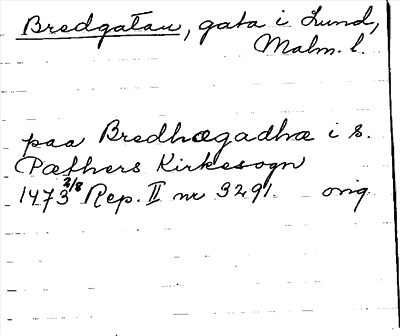 Bredgatan, gata i Lund,
Malm. l.
paa Bredhægadhæ i S.
Pæthers Kirkesogn
1473 2/8 Rep. II nr 3291. orig.